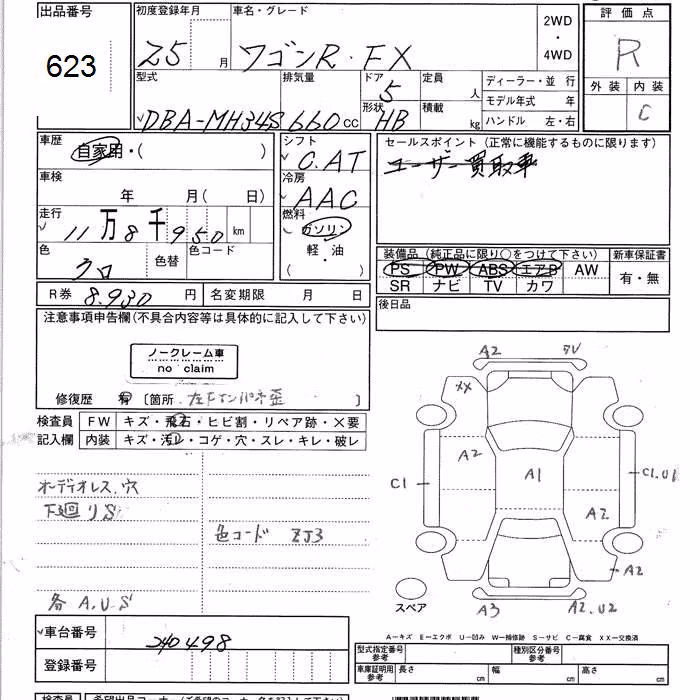 出品番号
623
初度登録年月
25 月
車名・グレード
ワゴンR・FX
2WD
・
4WD
評 価 点
R
外 装 内 装
C
型式
DBA-MH34S
排気量
660 cc
ドア
5
形状
HB
定員
人
積載
kg
ディーラー・並 行
モデル年式 年
ハンドル 左・右
車歴
自家用・( )
シフト
C.AT
セールスポイント (正常に機能するものに限ります)
ユーザー買取車
車検
年 月( 日)
冷房
AAC
走行
11 万 8 千 950 km
燃料
ガソリン
軽・油
( )
色
クロ
色替
色コード
装備品 (純正品に限り○をつけて下さい)
PS PW ABS エアB AW
SR ナビ TV カワ
新車保証書
有・無
R券 8.930 円
名変期限 月 日
後日品
注意事項申告欄(不具合内容等は具体的に記入して下さい)
ノークレーム車
no claim
修復歴 有 〔箇所 左Fインパネ歪 〕
検査員
記入欄
FW キズ・飛石・ヒビ割・リペア跡・×要
内装 キズ・汚レ・コゲ・穴・スレ・キレ・破レ
オーディオレス,穴
下廻リS
色コード ZJ3
各A,U,S
A2
XX
A2
A1
C1
C1.U1
A2
A2
A3
A2.U2
スペア
A―キズ E―エクボ U―凹み W―補修跡 S―サビ C―腐食 XX―交換済
車台番号
240498
登録番号
型式指定番号
参考
種別区分番号
参考
車庫証明用
参考
長さ cm
幅 cm
高さ cm